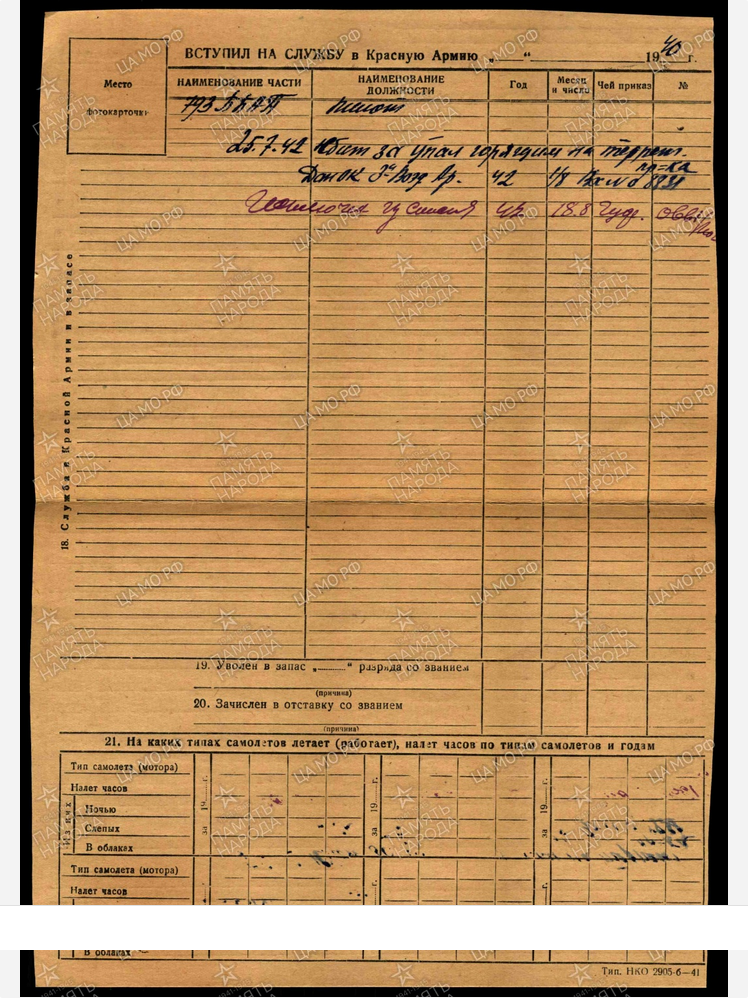 ВСТУПИЛ НА СЛУЖБУ в Красную Армию „ “ 1940 г.
Место фотокарточки
НАИМЕНОВАНИЕ ЧАСТИ
НАИМЕНОВАНИЕ ДОЛЖНОСТИ
Год
Месяц и число
Чей приказ
№
793 ББАП пилот
25.7.42 сбит за упал горящим на террит. пр-ка
Донок 8 Возд Ар. 42 1/8 Вх № 8831
42 18.8
18. Служба в Красной Армии и в запасе
19. Уволен в запас „ “ разряда со званием
(причина)
20. Зачислен в отставку со званием
(причина)
21. На каких типах самолетов летает (работает), налет часов по типам самолетов и годам
Тип самолета (мотора)
Налет часов
Из них
Ночью
Слепых
В облаках
за 19 г.
за 19 г.
за 19 г.
Тип самолета (мотора)
Налет часов
В облаках
Тип. НКО 2905-6—41
ЦАМО.РФ
ПАМЯТЬ НАРОДА